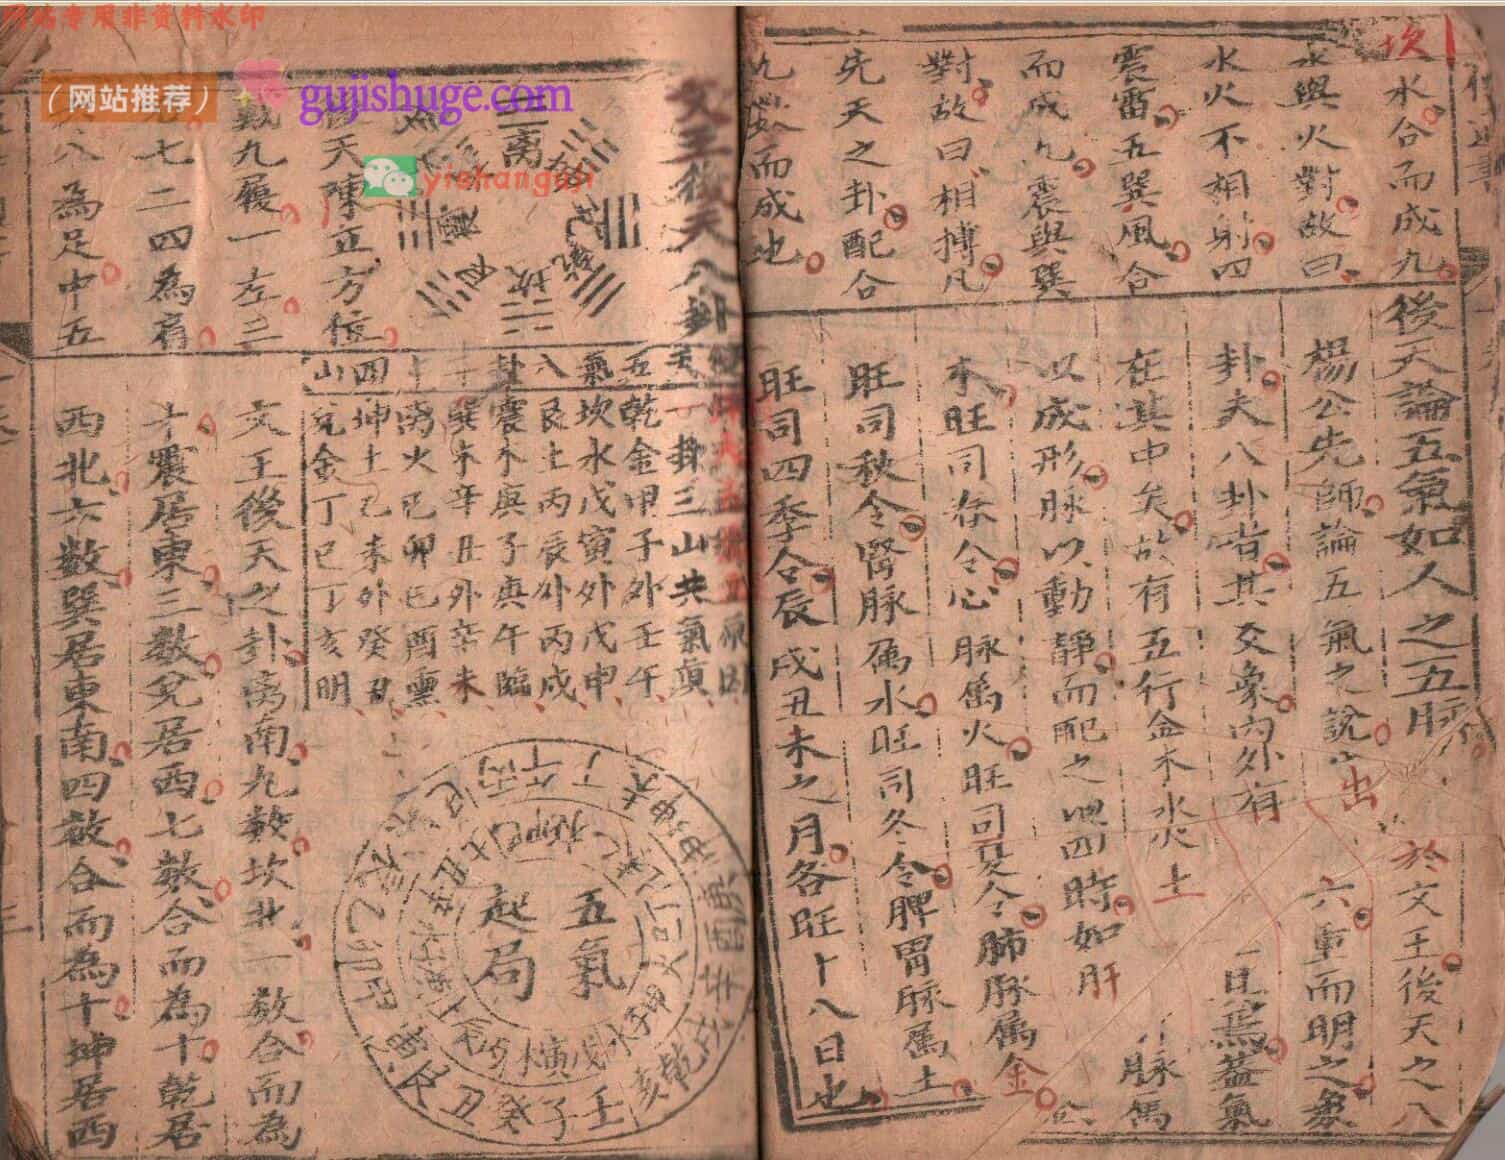 网站专用非资料水印
(网站推荐)
gujishuge.com
yishanguji
坎水合而成九
水與火對故曰
水火不相射四
震雷五巽風合
而成九震與巽
對故曰相搏凡
先天之卦配合
九數而成也
後天論五氣如人之五脉
楊公先師論五氣之說出於文王後天之八
卦夫八卦者其爻象內外有六重而明之象
在其中矣故有五行金木水火土
且焉蓋氣
以成形脉以動靜而配之四時如肝脉属
木旺司春令心脉属火旺司夏令肺脉属金
旺司秋令腎脉属水旺司冬令脾胃脉属土
旺司四季令辰戌丑未之月各旺十八日也
文王後天八卦
離
坤
兌
乾
坎
艮
震
後天陳立方位
戴九履一左三
右七二四為肩
六八為足中五
一卦三山共氣真
五乾金甲子外壬午
氣坎水戊寅外戊申
八艮土丙辰外丙戌
卦震木庚子庚午臨
巽木辛丑外辛未
離火己卯己酉熏
四坤土乙未外癸丑
山兌金丁巳丁亥明
五氣
起局
壬子癸丑艮寅甲卯乙辰巽巳丙午丁未坤申庚酉辛戌乾亥
文王後天之卦離南九数坎北一数合而為
十震居東三数兌居西七数合而為十乾居
西北六数巽居東南四数合而為十坤居西